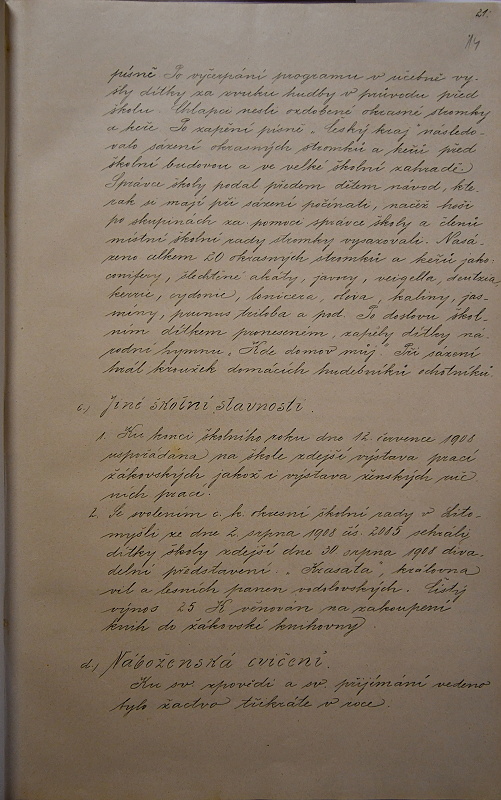 21.
písně. Po vyčerpání programu v učebně vy-
šly dítky za zvuku hudby v průvodu před
školu. Chlapci nesli ozdobené okrasné stromky
a keře. Po zapění písně „Český kraj" následo-
valo sázení okrasných stromků a keřů před
školní budovou a ve velké školní zahradě.
Správce školy podal předem dětem návod, kte-
rak si mají při sázení počínati, načež hoši
po skupinách za pomoci správce školy a členů
místní školní rady stromky vysazovali. Nasá-
zeno celkem 20 okrasných stromků a keřů jako:
conifery, šlechtěné akáty, javory, veigelia, deutzia,
kerrie, cydonie, lonicera, olova, kaliny, jas-
míny, prunus triloba a pod. Po doslovu škol-
ním dítkem proneseném, zapěly dítky ná-
rodní hymnu „Kde domov můj." Při sázení
hrál kroužek domácích hudebníků ochotníků.
c.) Jiné školní slavnosti.
1. Ku konci školního roku dne 12. července 1908
uspořádána na škole zdejší výstava prací
žákovských, jakož i výstava ženských ruč-
ních prací.
2. Se svolením c. k. okresní školní rady v Lito-
myšli ze dne 2. srpna 1908 čís. 2085 sehráli
dítky školy zdejší dne 30. srpna 1908 diva-
delní představení: „Krasata", královna
vil a lesních panen vodolovských. Čistý
výnos 25 K věnován na zakoupení
knih do žákovské knihovny.
d.) Náboženská cvičení.
Ku sv. zpovědi a sv. přijímání vedeno
bylo žactvo třikráte v roce.